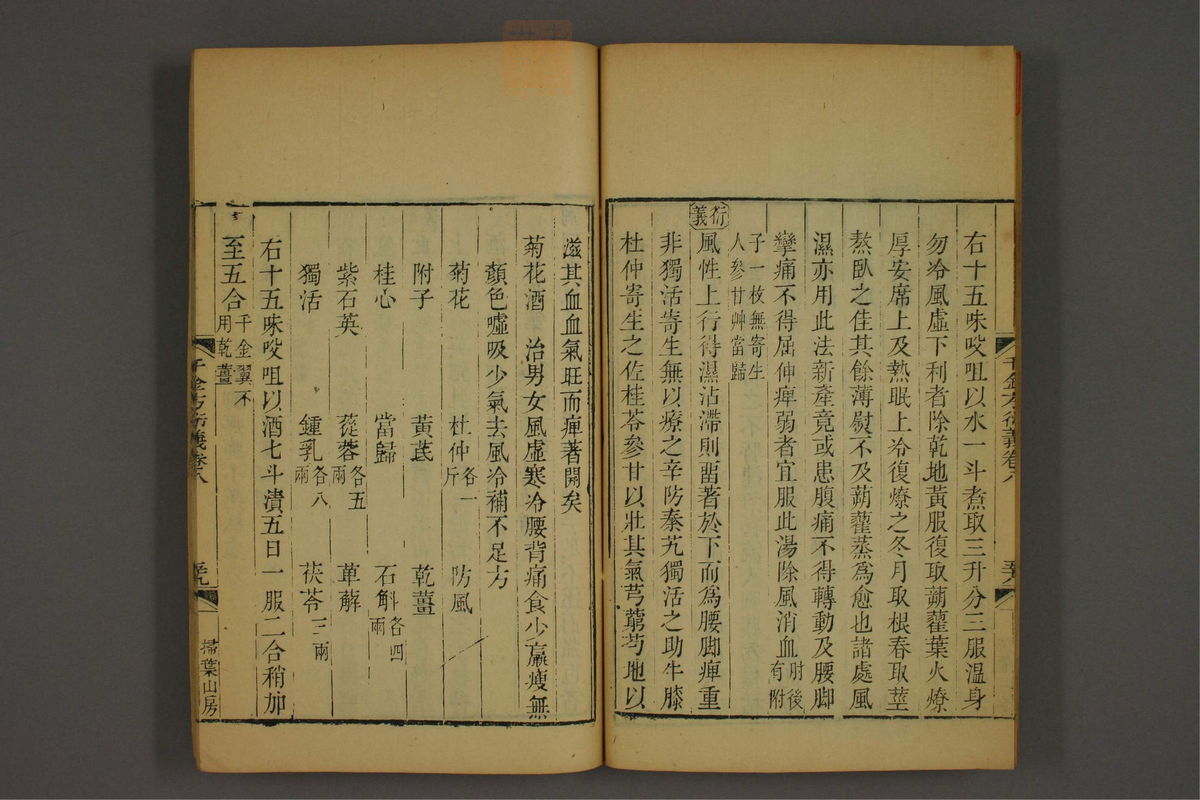 右十五味㕮咀以水一斗煮取三升分三服溫身
勿冷風虛下利者除乾地黃服復取蒴藋葉火燎
厚安席上及熱眠上冷復燎之冬月取根春取莖
熬臥之佳其餘薄熨不及蒴藋蒸爲愈也諸處風
濕亦用此法新產竟或患腹痛不得轉動及腰脚
攣痛不得屈伸痺弱者宜服此湯除風消血肘後有附
子一枚無寄生人參甘艸當歸
衍義
風性上行得濕沾滯則畱著於下而爲腰脚痺重
非獨活寄生無以療之辛防秦艽獨活之助牛膝
杜仲寄生之佐桂苓參甘以壯其氣芎藭芍地以
千金方衍義卷八
至八
滋其血血氣旺而痺著開矣
菊花酒 治男女風虛寒冷腰背痛食少羸瘦無
顏色噓吸少氣去風冷補不足方
菊花 杜仲各一斤 防風
附子 黃芪 乾薑
桂心 當歸 石斛各四兩
紫石英 蓯蓉各五兩 萆薢
獨活 鍾乳各八兩 茯苓三兩
右十五味㕮咀以酒七斗漬五日一服二合稍加
至五合千金翼不用乾薑
千金方衍義卷八
至九
掃葉山房